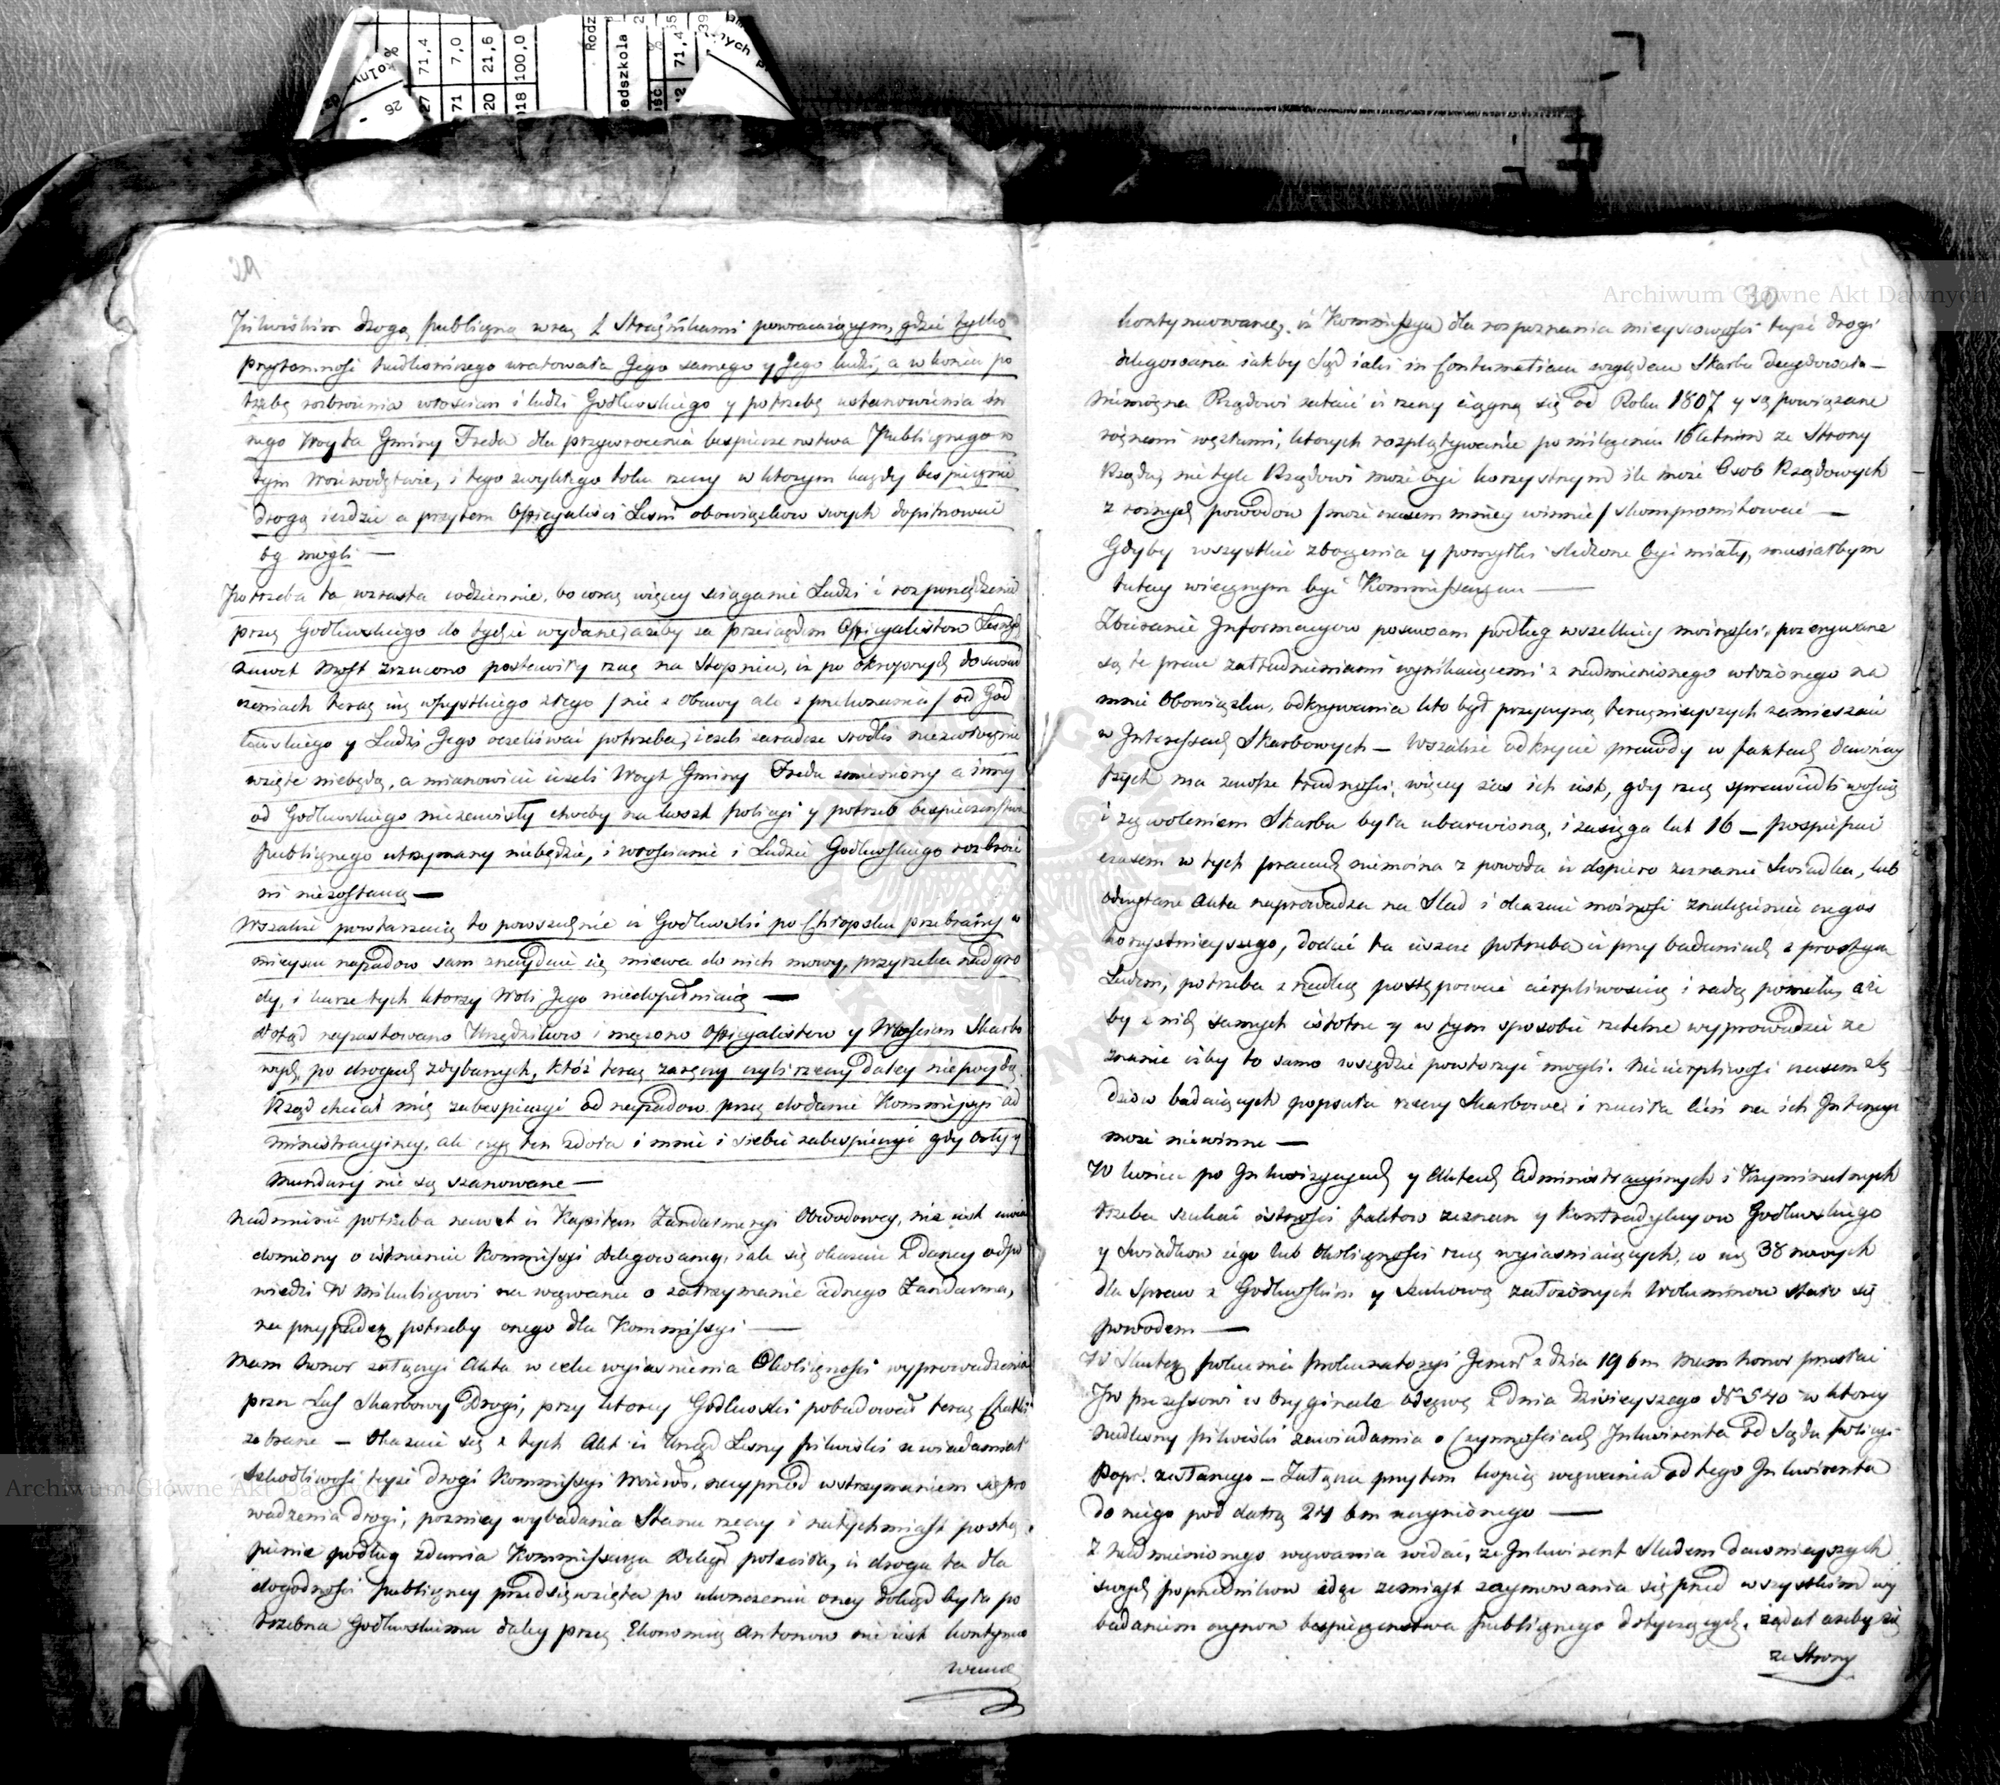 29
Pilwiskim drogą publiczną wraz z Strażnikami powracaiącym, gdzie tylko
przytomność Nadleśniczego uratowała Jego samego y Jego ludzi, a w końcu po
trzebę rozbroienia włościan i ludzi Godlewskiego y potrzebę ustanowienia in
nego Woyta Gminy Freda dla przywrocenia bespieczenstwa Publicznego w
tym Woiewodztwie, i tego zwykłego toku rzeczy w ktorym każdy bespiecznie
drogą iezdzie a przytem Officyaliści Leśni obowiązkow swych dopilnować
by mogli —
Potrzeba ta wzrasta codziennie, bo coraz więcey ściąganie Ludzi i rozporządzenie
przez Godlewskiego do tychże wydane, ażeby za przeiazdem Officyalistow Leśnych
nawet Most zrzucono postawiły rzecz na Stopniu, iż po okropnych doświad
czeniach teraz iuż wszystkiego złego / nie z Obawy ale z przekonania / od God
lewskiego y Ludzi Jego oczekiwać potrzeba, ieżeli zaradcze srodki niezwłocznie
wzięte niebędą, a mianowicie ieżeli Woyt Gminy Freda zmieniony a inny
od Godlewskiego niezawisły choćby na koszt Policyi y potrzeb bespieczeństwa
publicznego utrzymany niebędzie, i włościanie i Ludzie Godlewskiego rozbroie
ni niezostaną —
Wszakże powtarzaią to powszechnie iż Godlewski po Chłopsku przebrany w
mieyscu napadow sam znayduie się miewa do nich mowy, przyrzeka nadgro
dy, i karze tych ktorzy Woli Jego niedopełniaią —
Dotąd napastowano Urzędnikow i męczono Officyalistow y Włościan Skarbo
wych po drogach zdybanych, któż teraz zaręczy czyli rzeczy daley niepoydą
Rząd chciał mię zabespieczyć od napadow przez dodanie Kommissyi ad
ministracyiney, ale czyż ten zdoła i mnie i siebie zabespieczyć gdy Orły y
Mundury nie są szanowane —
Nadmienić potrzeba nawet iż Kapitan Żandarmeryi Obwodowey, nie iest uwia
domiony o istnieniu Kommissyi delegowaney, iak się okazuie z daney odpo
wiedzi W Mikuliczowi na wezwanie o zatrzymanie iednego Żandarma,
na przypadek potrzeby onego dla Kommissyi —
Mam honor załączyć Akta w celu wyiasnienia Okoliczności wyprowadzenia
przez Las Skarbowy Drogi, przy ktorey Godlewski pobudował teraz Chatki
zebrane — Okazuie się z tych Akt iż Urząd Lesny Pilwiski uwiadamiał
szkodliwość teyże drogi Kommissyi Woiewó. naypród wstrzymaniem się pro
wadzenia drogi, pozniey wybadania Stanu rzeczy i natychmiast postą
pienie podług zdania Kommissarza Deleg. poleciła, iż droga ta dla
dogodności publiczney przedsięwzięta po ukończeniu oney dokąd była po
trzebna Godlewskiemu daley przez Ekonomię Antonow nie iest kontynuo
waną
30
kontynuowaną, iż Kommissya dla rozpoznania mieyscowości teyże drogi
delegowana iakby Sąd iaki in Contumaciam względem Skarbu decydowała —
Niemożna Rządowi zataić iż rzeczy ciągną się od Roku 1807 y są powiązane
rożnemi węzłami, ktorych rozplątywanie po milczeniu 16letnim ze Strony
Rządu, nie tyle Rządowi może być korzystnym ile może Osob Rządowych
z rożnych powodow / może czasem mniey winnie / skompromitować —
Gdyby wszystkie zboczenia y pomysłki sledzone być miały, musiałbym
tutay wiecznym być Kommissarzem —
Zbieranie Informacyow posuwam podług wszelkiey możności, przerywane
są te prace zatrudnieniami wynikaiącemi z nadmienionego włożonego na
mnie Obowiązku, odkrywania kto był przyczyną teraznieyszych zamieszań
w Interessach Skarbowych — Wszakże odkrycie prawdy w faktach dawniey
szych ma zawsze trudności, więcey zas ich iest, gdy rzecz sprawiedliwością
i zezwoleniem Skarbu była ubarwioną, i zasięga lat 16 — Pospieszać
czasem w tych pracach niemożna z powodu iż dopiero zeznanie Swiadka, lub
odczytane Akta naprowadza na Slad i okazuie możność znalezienia czegoś
korzystnieyszego, dodać tu ieszcze potrzeba iż przy badaniach z prostym
Ludem, potrzeba z nadludzką postępować cierpliwością i radą pomału, aże
by z nich samych istotne y w tym sposobie rzetelne wyprowadzić ze
znanie iżby to samo wszędzie powtorzyć mogli. Niecierpliwość czasem Sę
dziow badaiących popsuła rzeczy Skarbowe i rzuciła cień na ich Intencye
może niewinne —
W końcu po Inkwizycyach y Aktach administracyinych i Kryminalnych
trzeba szukać istności faktow zeznan y kontradykcyow Godlewskiego
y Swiadkow iego lub Okoliczności rzecz wyiasniaiących, co iuż 38 nowych
dla Spraw z Godlewskim y Szukową założonych Woluminow stało się
powodem —
W Skutek polecenia Prokuratoryi Gener. z dnia 19 bm mam honor przesłać
JW Prezessowi w Oryginale odezwę z dnia dzisieyszego No 540 w ktorey
Nadlesny Pilwiski zawiadamia o Czynnościach Inkwirenta od Sądu Policyi
Popr. zesłanego — Załącza przytem kopię wezwania od tego Inkwirenta
do niego pod datą 24 bm uczynionego —
Z nadmienionego wezwania widać, że Inkwirent śladem dawnieyszych
swych poprzednikow idąc zamiast zaymowania się przed wszystkim wy
badaniem czynow bespieczenstwa publicznego dotyczących, żądał ażeby się
ze Strony